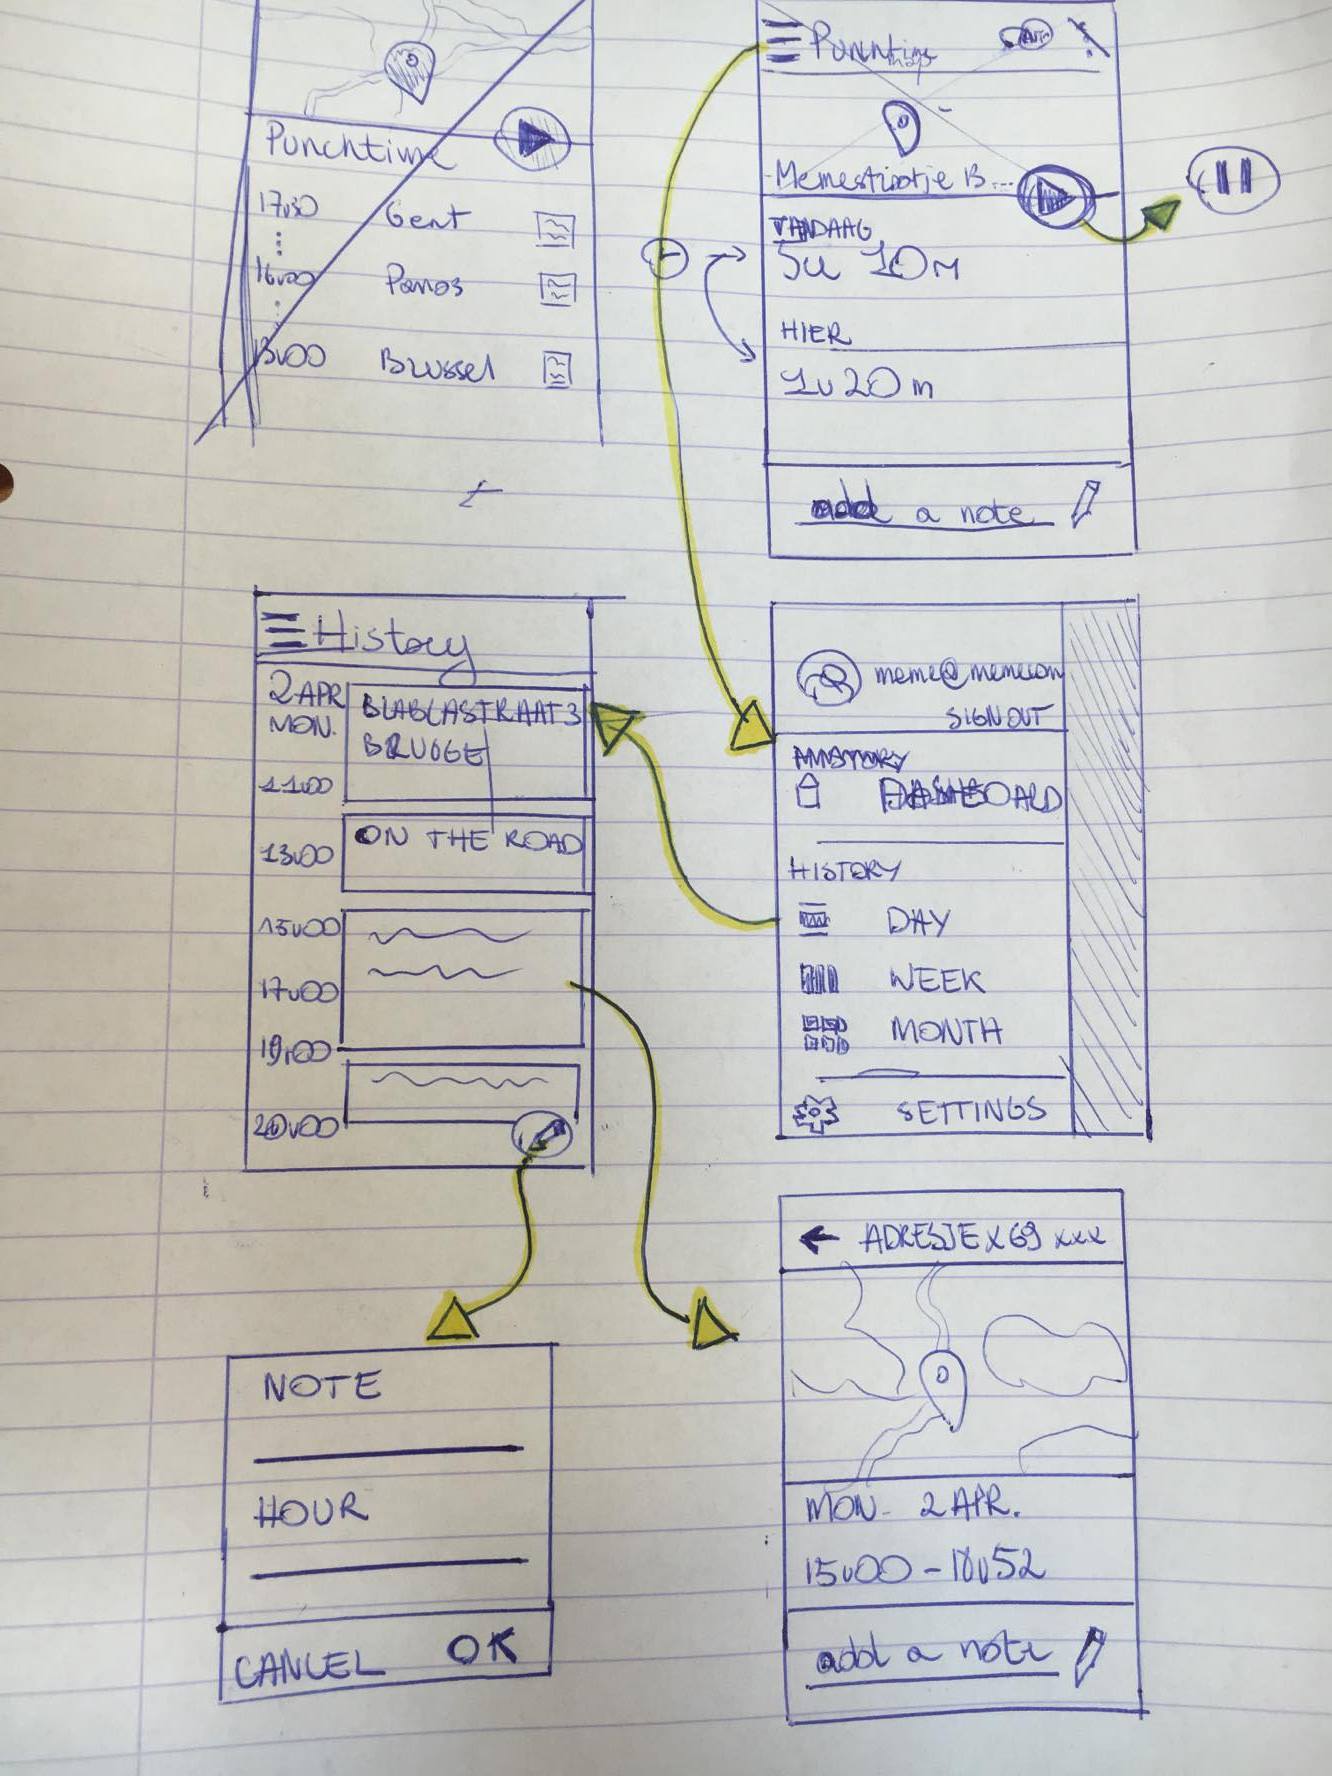 Punchtime
17u30 Gent
16u00 Panos
13u00 Brussel
Punchtime
Memestraatje B...
VANDAAG
5u 10m
HIER
1u 20m
add a note
History
2 APR
MON.
BLABLASTRAAT 3
BRUGGE
11u00
ON THE ROAD
13u00
15u00
17u00
19u00
20u00
meme@meme.com
SIGN OUT
DASHBOARD
HISTORY
DAY
WEEK
MONTH
SETTINGS
NOTE
HOUR
CANCEL OK
ADRESJE X 69 xxx
MON. 2 APR.
15u00 - 18u52
add a note